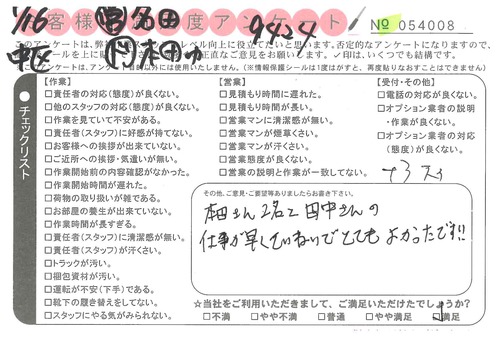 1/16
お客様満足度アンケート
9424
No 054008
このアンケートは、弊
レベル向上に役立てたいと思います。否定的なアンケートになりますので、
正直なご意見をお願いします。✓印は、いくつでも結構です。
にアンケートは、アンケート目的以外には使用いたしません。(※情報保護シールは1度はがすと、再度貼りなおすことはできません)
チェックリスト
【作業】
□責任者の対応(態度)が良くない。
□他のスタッフの対応(態度)が良くない。
□作業を見ていて不安がある。
□責任者(スタッフ)に好感が持てない。
□お客様への挨拶が出来ていない。
□ご近所への挨拶・気遣いが無い。
□作業開始前の内容確認がなかった。
□作業開始時間が遅れた。
□荷物の取り扱いが雑である。
□お部屋の養生が出来ていない。
□作業時間が長すぎる。
□責任者(スタッフ)に清潔感が無い。
□責任者(スタッフ)が汗くさい。
□トラックが汚い。
□梱包資材が汚い。
□運転が不安(下手)である。
□靴下の履き替えをしてない。
□スタッフにやる気がみられない。
【営業】
□見積もり時間に遅れた。
□見積もり時間が長い。
□営業マンに清潔感が無い。
□営業マンが煙草くさい。
□営業マンが汗くさい。
□営業態度が良くない。
□営業の説明と作業が一致してない。
【受付・その他】
□電話の対応が良くない。
□オプション業者の説明
・作業が良くない。
□オプション業者の対応
(態度)が良くない。
その他、ご意見・ご要望等ありましたらお書き下さい。
本田さん 2名と 田中さんの
仕事が早くていねいでとてもよかったです!!
☆当社をご利用いただきまして、ご満足いただけたでしょうか?
□不満 □やや不満 □普通 □やや満足 ☑満足